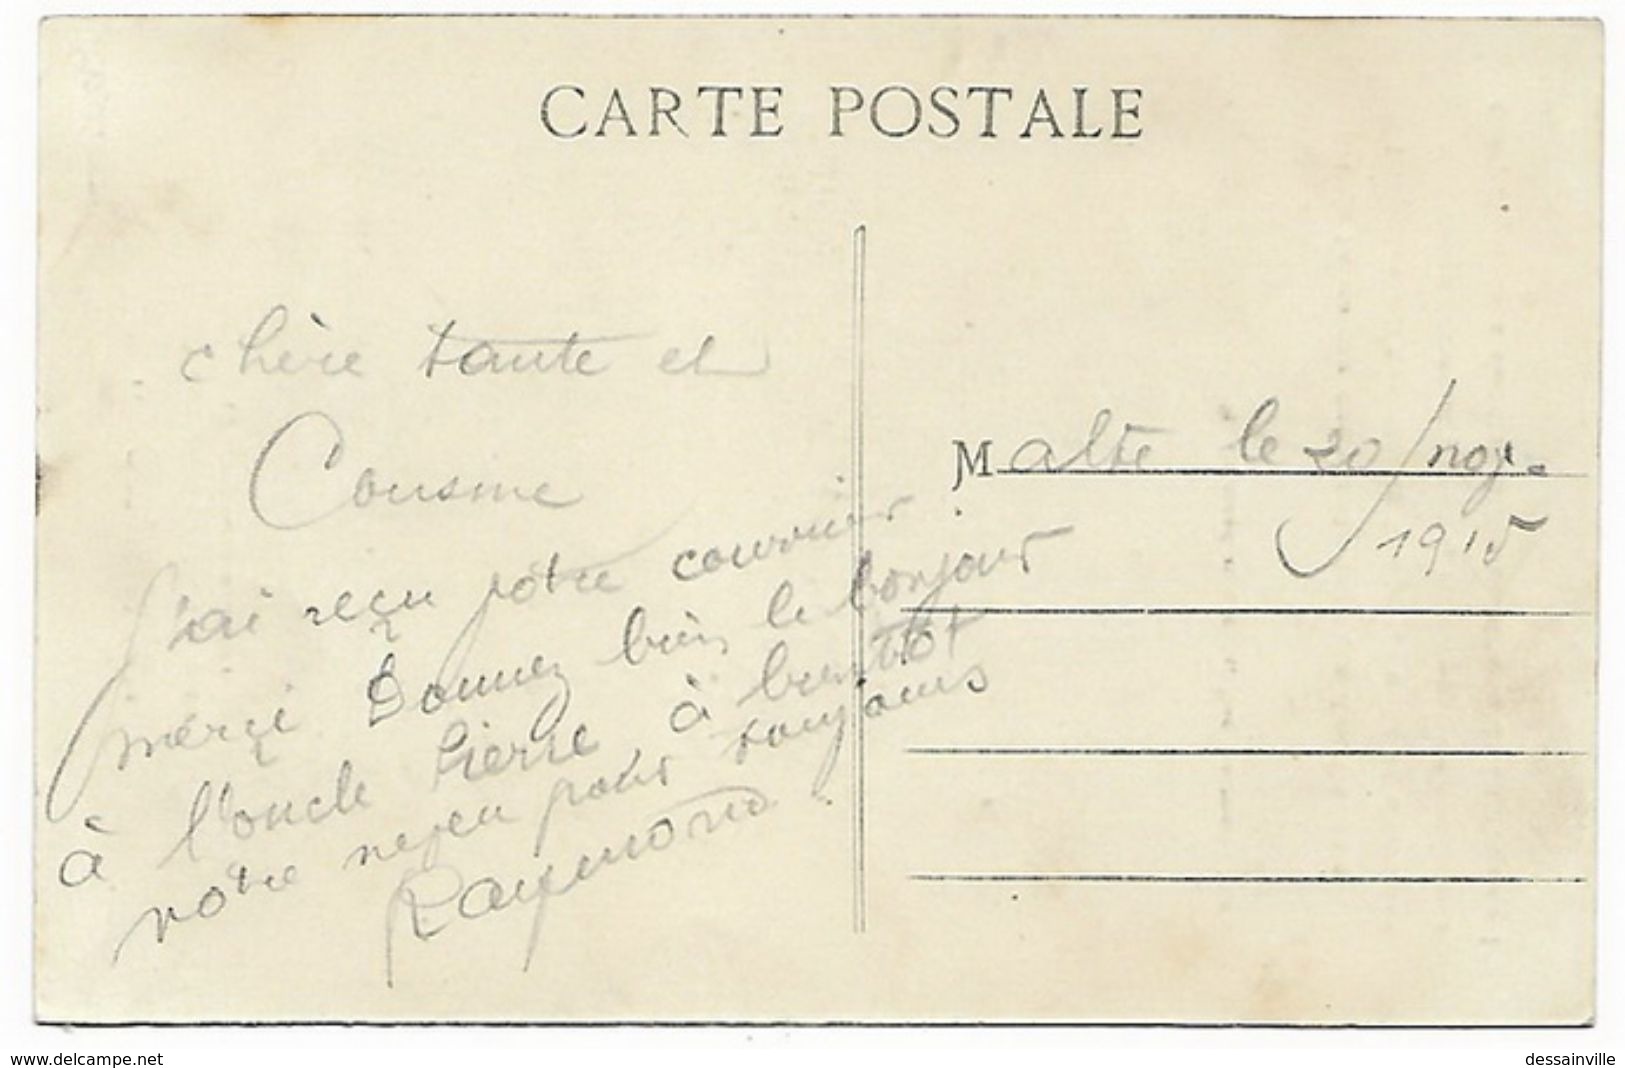 CARTE POSTALE
chère tante et
Cousine
j'ai reçu votre courrier
merçi Donnez bien le bonjour
à l'oncle Pierre à bientôt
votre neveu pour toujours
Raymond
Malte le 20/nov.
1915
www.delcampe.net
dessainville